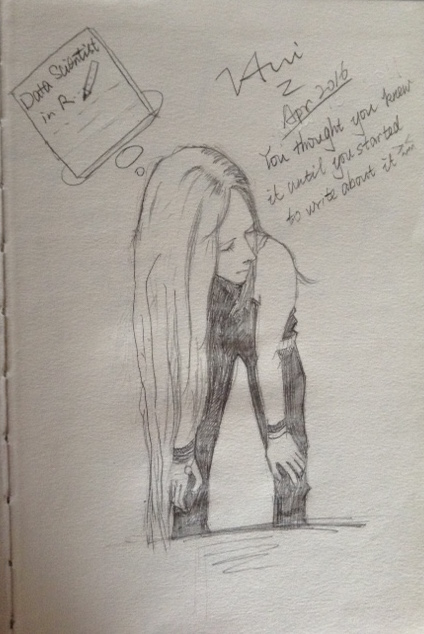 Data Scientist
in R
Apr 2016
You thought you knew
it until you started
to write about it